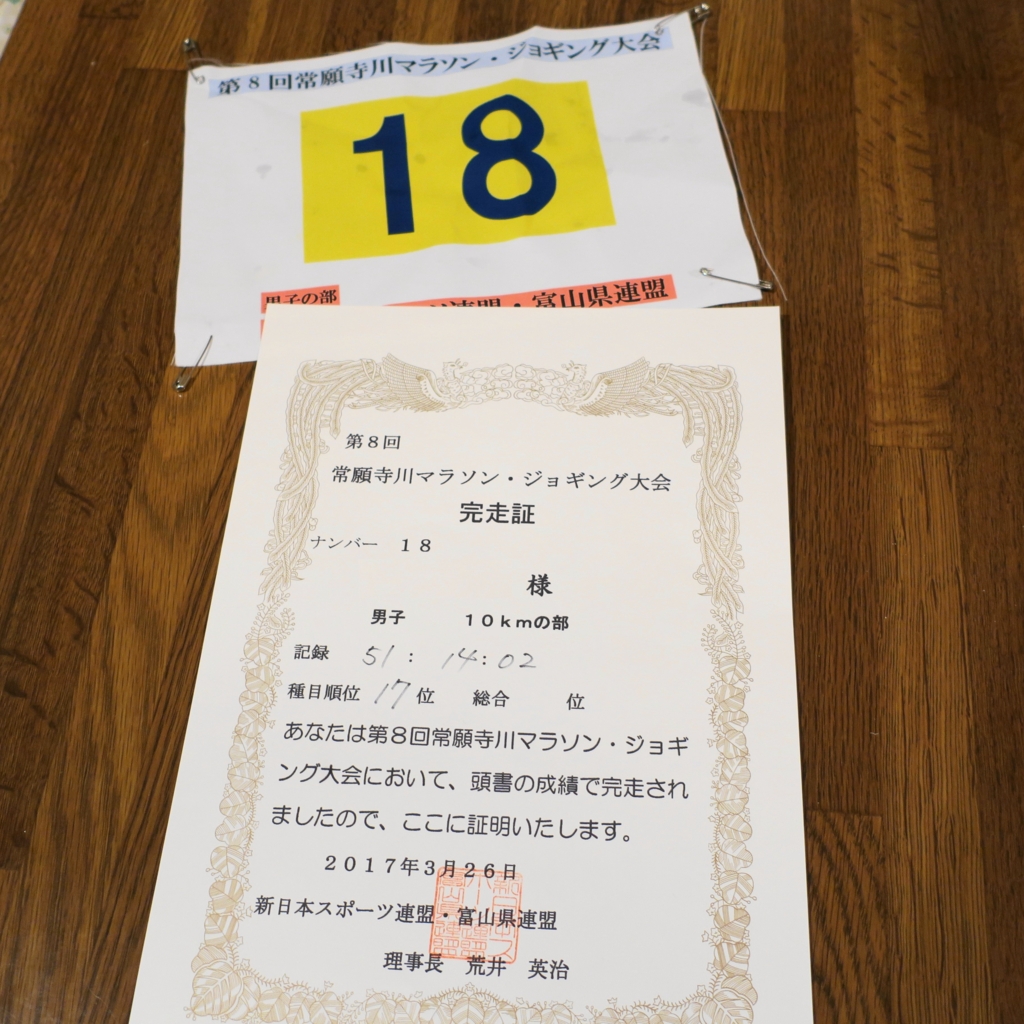 第8回常願寺川マラソン・ジョギング大会
18
男子の部
連盟・富山県連盟
第8回
常願寺川マラソン・ジョギング大会
完走証
ナンバー 18
様
男子 10kmの部
記録 51:14:02
種目順位 17位 総合 位
あなたは第8回常願寺川マラソン・ジョギ
ング大会において、頭書の成績で完走され
ましたので、ここに証明いたします。
2017年3月26日
新日本スポーツ連盟・富山県連盟
理事長 荒井 英治